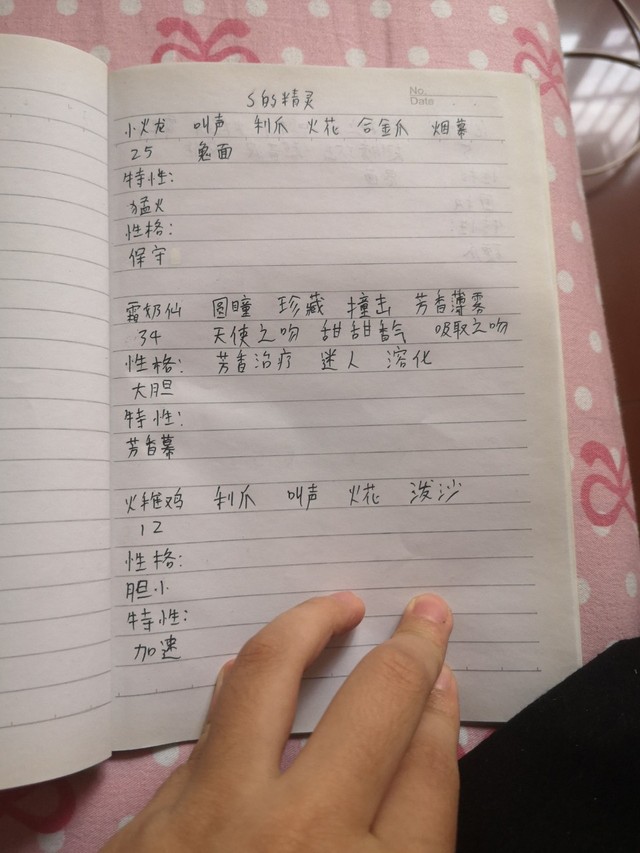 S的精灵
No.
Date
小火龙 叫声 利爪 火花 合金爪 烟幕
25 鬼面
特性:
猛火
性格:
保守
霜奶仙 圆瞳 珍藏 撞击 芳香薄雾
34 天使之吻 甜甜香气 吸取之吻
性格: 芳香治疗 迷人 溶化
大胆
特性:
芳香幕
火稚鸡 利爪 叫声 火花 泼沙
12
性格:
胆小
特性:
加速